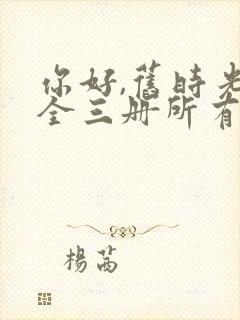 你好,舊時光
全三册所有
楊茜